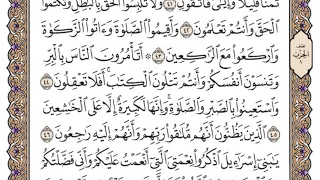 ثَمَنًا قَلِيلًا وَإِيَّٰىَ فَٱتَّقُونِ ٤١ وَلَا تَلْبِسُوا۟ ٱلْحَقَّ بِٱلْبَٰطِلِ وَتَكْتُمُوا۟
ٱلْحَقَّ وَأَنتُمْ تَعْلَمُونَ ٤٢ وَأَقِيمُوا۟ ٱلصَّلَوٰةَ وَءَاتُوا۟ ٱلزَّكَوٰةَ
وَٱرْكَعُوا۟ مَعَ ٱلرَّٰكِعِينَ ٤٣ ۞ أَتَأْمُرُونَ ٱلنَّاسَ بِٱلْبِرِّ
وَتَنسَوْنَ أَنفُسَكُمْ وَأَنتُمْ تَتْلُونَ ٱلْكِتَٰبَ ۚ أَفَلَا تَعْقِلُونَ ٤٤
وَٱسْتَعِينُوا۟ بِٱلصَّبْرِ وَٱلصَّلَوٰةِ ۚ وَإِنَّهَا لَكَبِيرَةٌ إِلَّا عَلَى ٱلْخَٰشِعِينَ ٤٥
ٱلَّذِينَ يَظُنُّونَ أَنَّهُم مُّلَٰقُوا۟ رَبِّهِمْ وَأَنَّهُمْ إِلَيْهِ رَٰجِعُونَ ٤٦
يَٰبَنِىٓ إِسْرَٰٓءِيلَ ٱذْكُرُوا۟ نِعْمَتِىَ ٱلَّتِىٓ أَنْعَمْتُ عَلَيْكُمْ وَأَنِّى فَضَّلْتُكُمْ